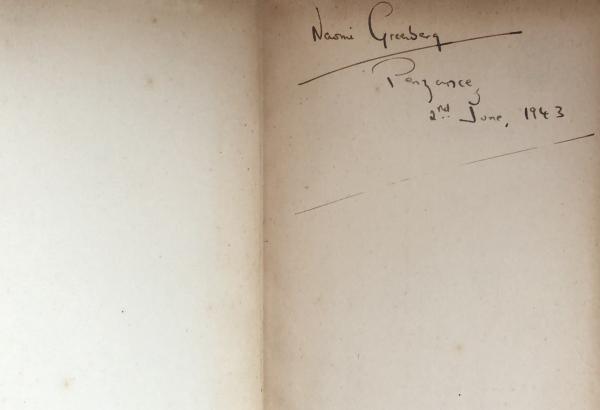 Naomi Greenberg
Penzance,
2nd June, 1943